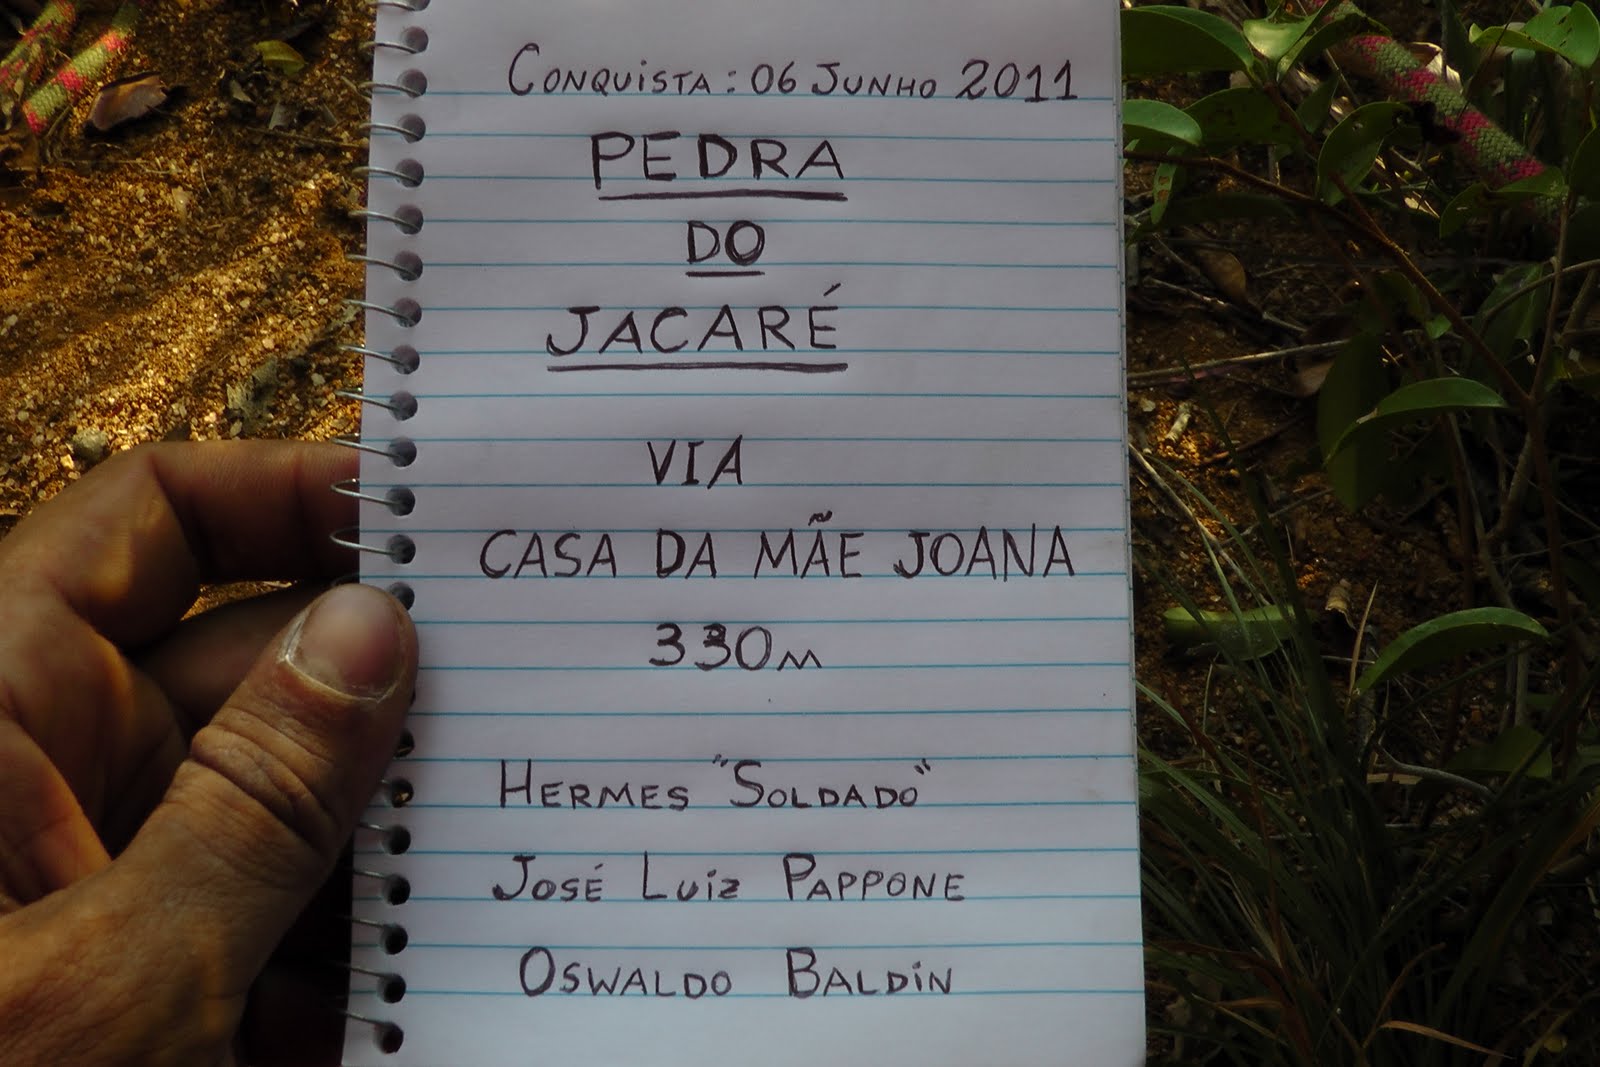 CONQUISTA: 06 JUNHO 2011
PEDRA
DO
JACARÉ
VIA
CASA DA MÃE JOANA
330M
HERMES "SOLDADO"
JOSÉ LUiz PAPPONE
OSWALDO BALDiN